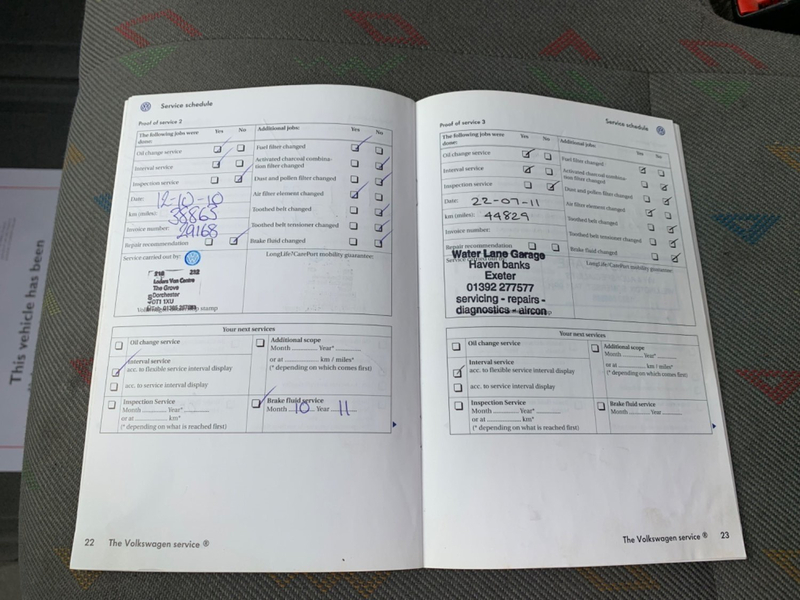 This vehicle has been
Service schedule
Proof of service 2
The following jobs were done:
Yes No
Additional jobs:
Yes No
Oil change service
Interval service
Inspection service
Date: 12-10-10
km (miles): 38865
Invoice number: 29168
Repair recommendation
Fuel filter changed
Activated charcoal combina-
tion filter changed
Dust and pollen filter changed
Air filter element changed
Toothed belt changed
Toothed belt tensioner changed
Brake fluid changed
Service carried out by:
LongLife/CarePort mobility guarantee:
Loders Van Centre
The Grove
Dorchester
stamp
Your next services
Oil change service
Interval service
acc. to flexible service interval display
acc. to service interval display
Additional scope
Month ........ Year* ........
or at ............ km / miles*
(* depending on which comes first)
Inspection Service
Month ........ Year* ........
or at ........ km*
(* depending on what is reached first)
Brake fluid service
Month 10 Year 11
22 The Volkswagen service ®
Proof of service 3
Service schedule
The following jobs were
done:
Yes No
Additional jobs:
Yes No
Oil change service
Interval service
Inspection service
Date: 22-07-11
km (miles): 44829
Invoice number:
Repair recommendation
Fuel filter changed
Activated charcoal combina-
tion filter changed
Dust and pollen filter changed
Air filter element changed
Toothed belt changed
Toothed belt tensioner changed
Brake fluid changed
Water Lane Garage
Haven banks
Exeter
01392 277577
servicing - repairs -
diagnostics - aircon
LongLife/CarePort mobility guarantee:
Your next services
Oil change service
Interval service
acc. to flexible service interval display
acc. to service interval display
Additional scope
Month ........ Year* ........
or at ............ km / miles*
(* depending on which comes first)
Inspection Service
Month ........ Year* ........
or at ........ km*
(* depending on what is reached first)
Brake fluid service
Month ........ Year ........
The Volkswagen service ® 23